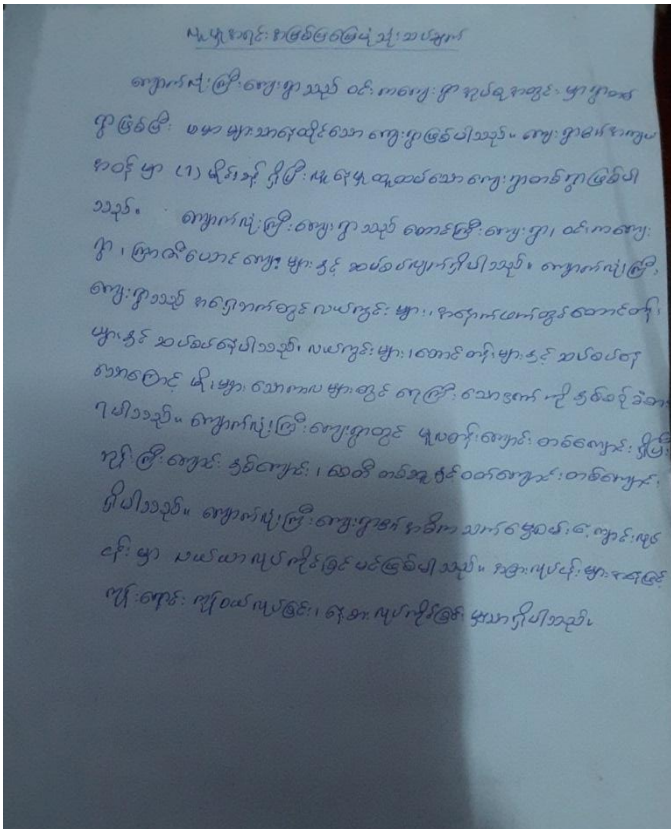 လူမှုစာရင်း အခြေပြမြေပုံသုံးသပ်ချက်
ကျောက်လုံးကြီးကျေးရွာသည် ဝင်းကကျေးရွာအုပ်စုအတွင်း မှ ရွာတစ်
ရွာဖြစ်ပြီး ဗမာများသာနေထိုင်သော ကျေးရွာဖြစ်ပါသည်။ ကျေးရွာ၏အကျယ်
အဝန်းမှာ (၁) မိုင်ခန့် ရှိပြီး လူနေမှုထူထပ်သော ကျေးရွာတစ်ရွာဖြစ်ပါ
သည်။ ကျောက်လုံးကြီးကျေးရွာသည် တောင်ကြီးကျေးရွာ၊ ဝင်းကကျေး
ရွာ၊ ကြာကီးယောင်ကျေးရွာ များနှင့် ဆပ်စပ်လျက်ရှိပါသည်။ ကျောက်လုံးကြီး
ကျေးရွာသည် အရှေ့ဘက်တွင်လယ်ကွင်းများ၊ အနောက်ဖက်တွင်တောင်တန်း
များနှင့် ဆပ်စပ်နေပါသည်။ လယ်ကွင်းများ၊ တောင်တန်းများနှင့် ဆပ်စပ်နေ
သောကြောင့် မိုးများသောကာလများတွင် ရေကြီးသောဒဏ်ကို နှစ်စဉ်ခံစား
ရပါသည်။ ကျောက်လုံးကြီးကျေးရွာတွင် မူလတန်းကျောင်းတစ်ကျောင်းရှိပြီး
ဘုန်းကြီးကျောင်းနှစ်ကျောင်း၊ စေတီတစ်ဆူနှင့်ဝတ်ကျောင်းတစ်ကျောင်း
ရှိပါသည်။ ကျောက်လုံးကြီးကျေးရွာ၏အဓိကအသက်မွေးဝမ်းကျောင်းလုပ်
ငန်းမှာ လယ်ယာလုပ်ကိုင်ခြင်းပင်ဖြစ်ပါသည်။ အခြားလုပ်ငန်းများအနေဖြင့်
ကုန်ရောင်းကုန်ဝယ်လုပ်ခြင်း၊ နေ့စားလုပ်ကိုင်ခြင်းမှုသာရှိပါသည်။